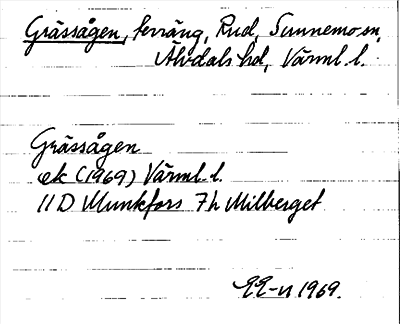 Grässågen, terräng, Rud, Sunnemo sn,
Älvdals hd, Värml. l.
Grässågen
ek (1969) Värml. l.
11 D Munkfors 7h Milberget
EE-n 1969.